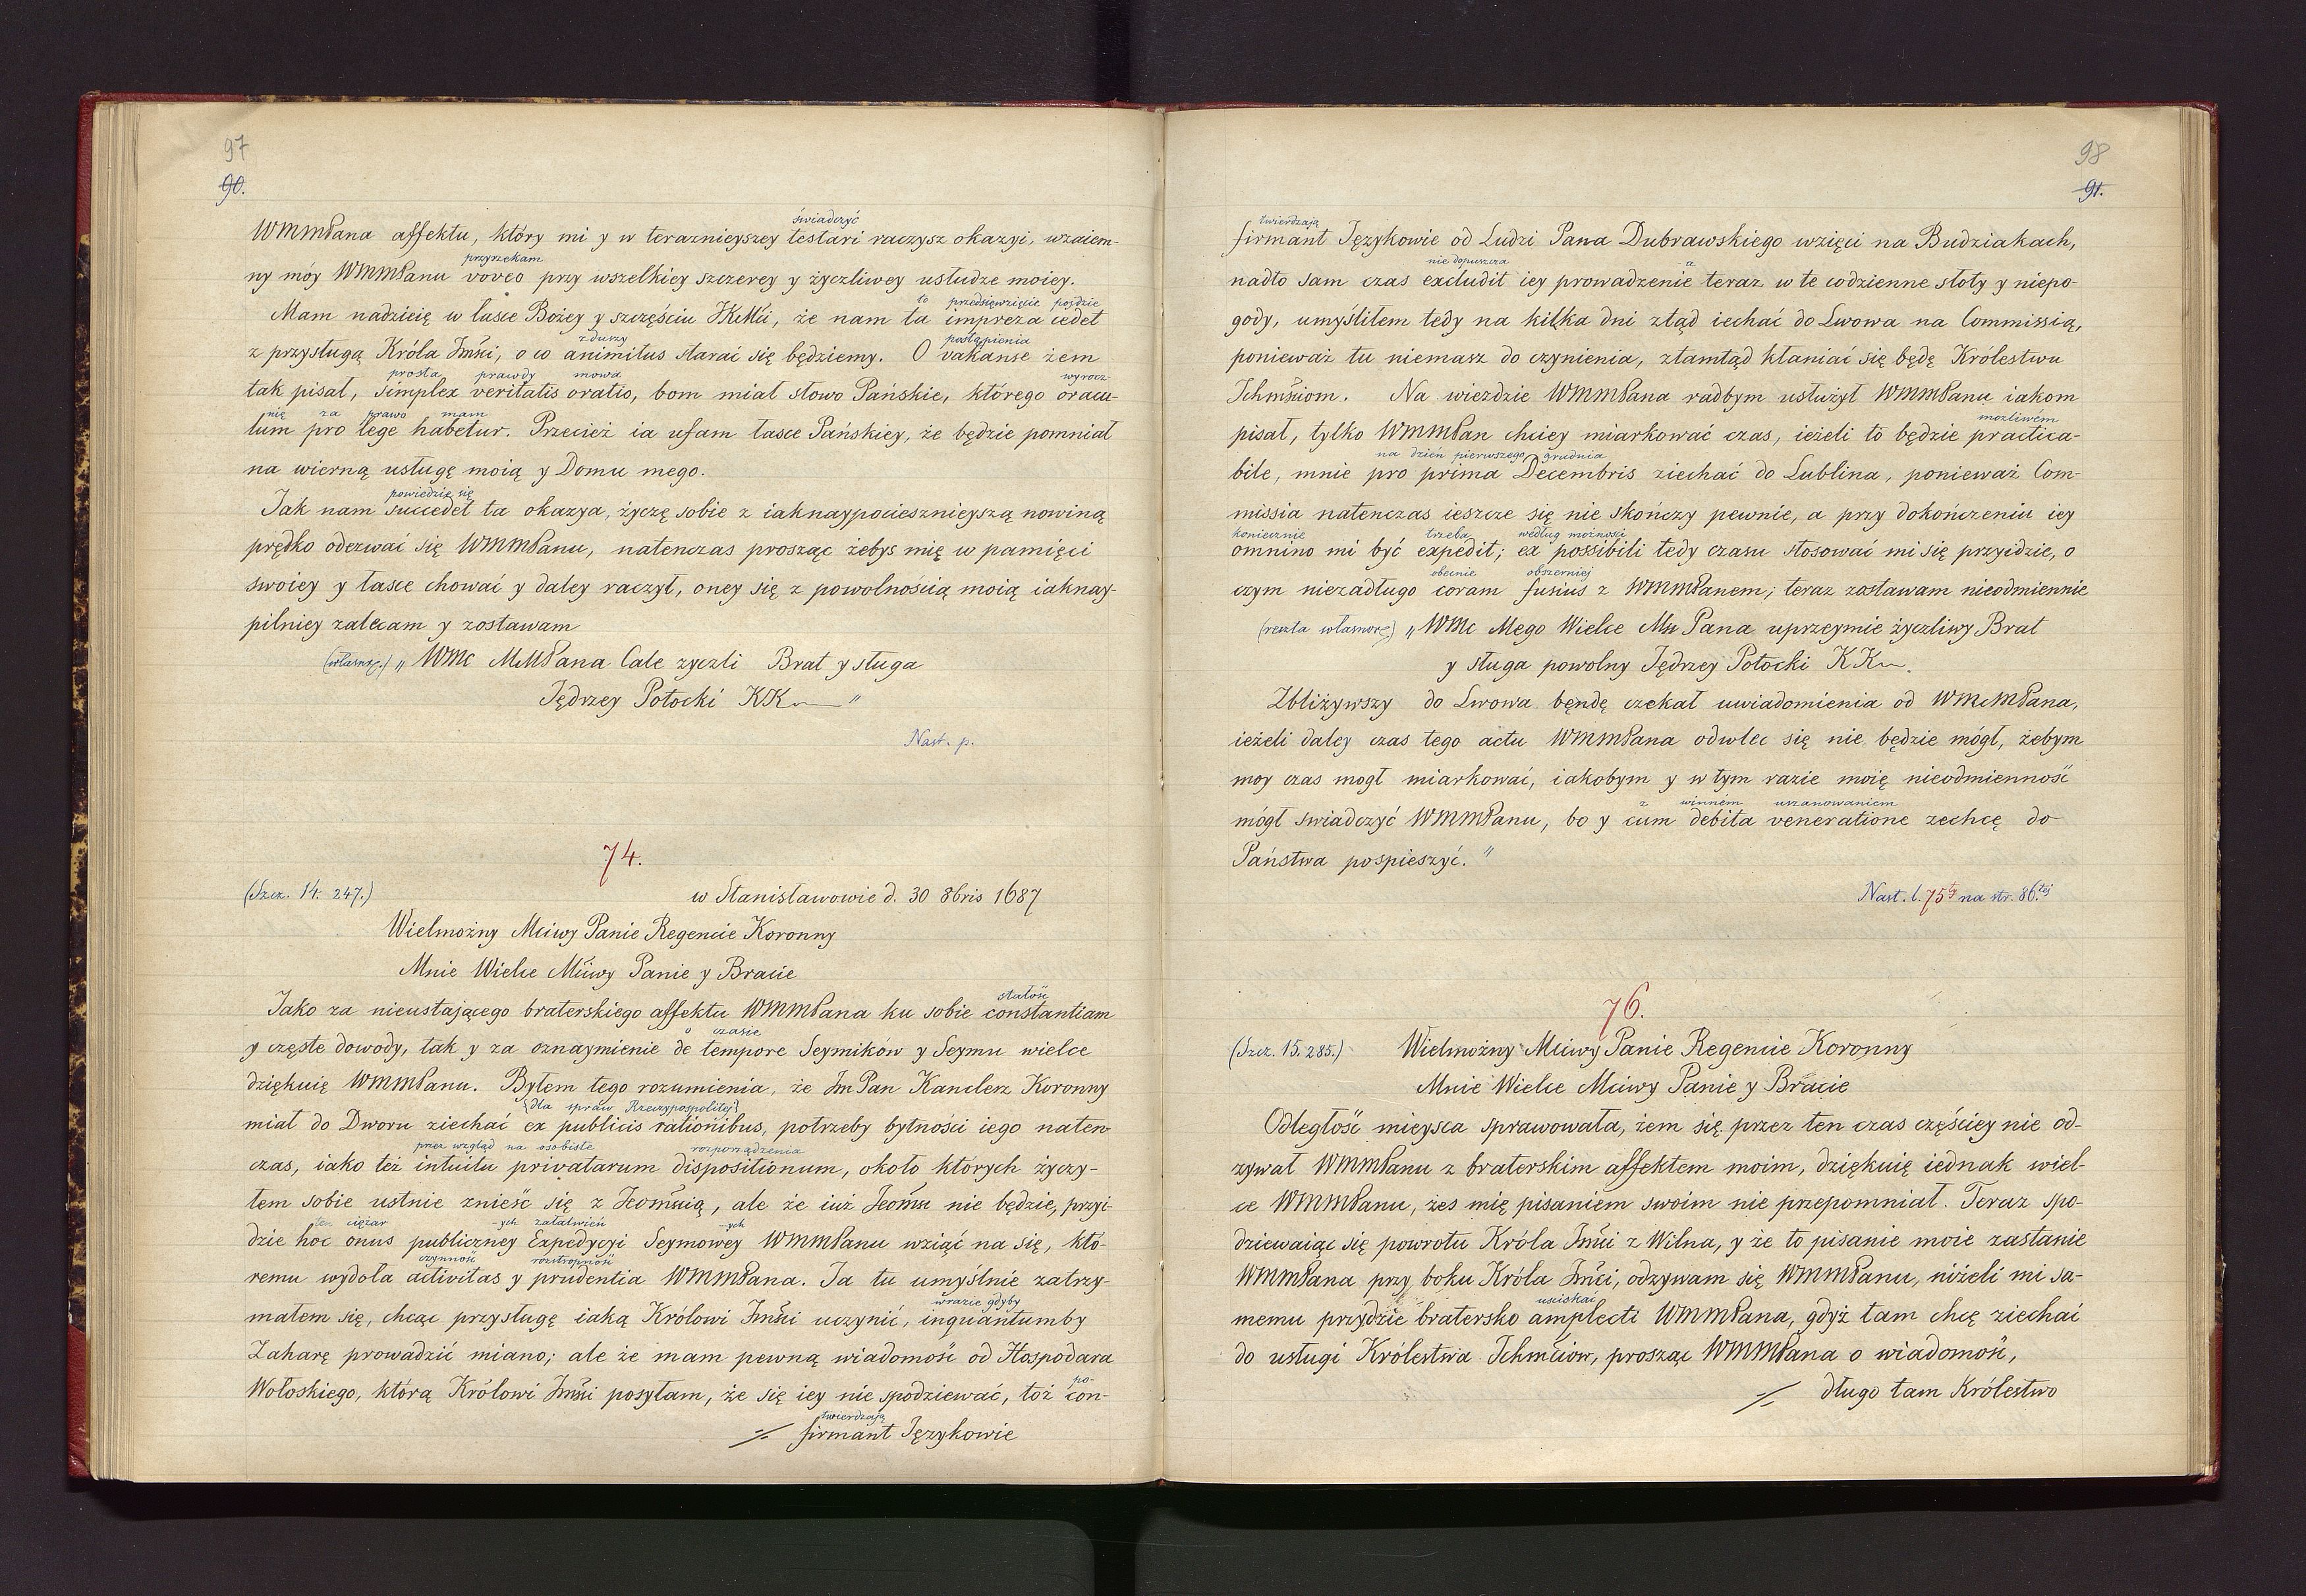 97
90.
świadczyć
WMMPana affektu, który mi y w teraznieyszey testari raczysz okazyi, wzaiem-
przyrzekam
ny móy WMMPanu voveo przy wszelkiey szczerey y życzliwey usłudze moiey.
to przedsięwzięcie pojdzie
Mam nadzieię w łasce Bożey y szczęściu JKMći, że nam ta impreza cedet
z duszy postąpienia
z przysługą Króla Jmści, o co animitus starać się będziemy. O vakanse żem
prosta prawdy mowa wyrocz-
tak pisał, simplex veritatis oratio, bom miał słowo Pańskie, którego oracu-
nię za prawo mam
lum pro lege habetur. Przecież ia ufam łasce Pańskiey, że będzie pomniał
na wierną usługę moią y Domu mego.
powiedzie się
Jak nam succedet ta okazya, życzę sobie z iaknaypociesznieyszą nowiną
prędko odezwać się WMMPanu, natenczas prosząc żebys mię w pamięci
swoiey y łasce chować y daley raczył, oney się z powolnością moią iaknay-
pilniey zalecam y zostawam
(własnrę.) „ WMc MMPana Cale zyczli Brat y sługa
Jędrzey Potocki KK "
Nast. p.
74.
(Szcz. 14. 247.) w Stanisławowie d. 30 8bris 1687
Wielmożny Mciwy Panie Regencie Koronny
Mnie Wielce Mciwy Panie y Bracie
stałość
Jako za nieustającego braterskiego affektu WMMPana ku sobie constantiam
o czasie
y częste dowody, tak y za oznaymienie de tempore Seymików y Seymu wielce
dziękuię WMMPanu. Byłem tego rozumienia, że Jm Pan Kanclerz Koronny
(dla spraw Rzeczypospolitej)
miał do Dworu ziechać ex publicis rationibus, potrzeby bytności iego naten-
przez wzgląd na osobiste rozporządzenia
czas, iako też intuitu privatarum dispositionum, około których życzy-
łem sobie ustnie znieść się z Jeomścią, ale że iuż Jeomść nie będzie, przyi-
ten ciężar -ych załatwień -ych
dzie hoc onus publiczney Expedycyi Seymowey WMMPanu wziąć na się, któ-
czynność roztropność
remu wydoła activitas y prudentia WMMPana. Ja tu umyślnie zatrzy-
wrazie gdyby
małem się, chcąc przysługę iaką Królowi Jmści uczynić, inquantumby
Zaharę prowadzić miano; ale że mam pewną wiadomość od Hospodara
po-
Wołoskiego, którą Królowi Jmści posyłam, że się iey nie spodziewać, toż con-
twierdzają
firmant Językowie
98
91.
twierdzają
firmant Językowie od Ludzi Pana Dubrawskiego wzięci na Budziakach,
nie dopuszcza a
nadto sam czas excludit iey prowadzenie teraz w te codzienne słoty y niepo-
gody, umyśliłem tedy na kilka dni ztąd iechać do Lwowa na Commissią,
ponieważ tu niemasz do czynienia, ztamtąd kłaniać się będę Królestwu
Ichmściom. Na wiezdzie WMMPana radbym usłużył WMMPanu iakom
możliwém
pisał, tylko WMMPan chciey miarkować czas, ieżeli to będzie practica-
na dzień pierwszego grudnia
bile, mnie pro prima Decembris ziechać do Lublina, ponieważ Com-
missia natenczas ieszcze się nie skończy pewnie, a przy dokończeniu iey
koniecznie trzeba według możności
omnino mi być expedit; ex possibili tedy czasu stosować mi się przyidzie, o
obecnie obszerniej
czym niezadługo coram fusius z WMMPanem; teraz zostawam nieodmiennie
(reszta własnorę) „ WMc Mego Wielce Mść Pana uprzeymie życzliwy Brat
y sługa powolny Jędrzey Potocki KK
Zbliżywszy do Lwowa będę czekał uwiadomienia od WMcMPana,
ieżeli daley czas tego actu WMMPana odwlec się nie będzie mógł, żebym
moy czas mogł miarkować, iakobym y w tym razie moię nieodmienność
z winném uszanowaniem
mógł swiadczyć WMMPanu, bo y cum debita veneratione zechcę do
Państwa pospieszyć. "
Nast. l. 75ty na str. 86.tej
76.
(Szcz. 15. 285.) Wielmożny Mciwy Panie Regencie Koronny
Mnie Wielce Mciwy Panie y Bracie
Odległość mieysca sprawowała, żem się przez ten czas częściey nie od-
zywał WMMPanu z braterskim affektem moim, dziękuię iednak wiel-
ce WMMPanu, żes mię pisaniem swoim nie przepomniał. Teraz spo-
dziewaiąc się powrotu Króla Jmści z Wilna, y że to pisanie moie zastanie
WMMPana przy boku Króla Jmści, odzywam się WMMPanu, niżeli mi sa-
usciskać
memu przydzie bratersko amplecti WMMPana, gdyż tam chcę ziechać
do usługi Królestwa Ichmściów, prosząc WMMPana o wiadomość,
długo tam Królestwo